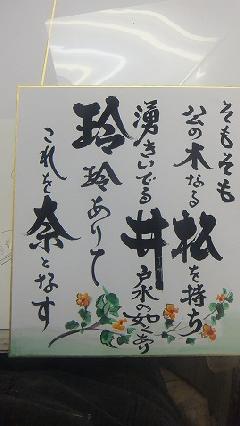 そもそも
公の木なる松を持ち
湧きいでる井戸水の如く
玲玲ありて
これを奈となす